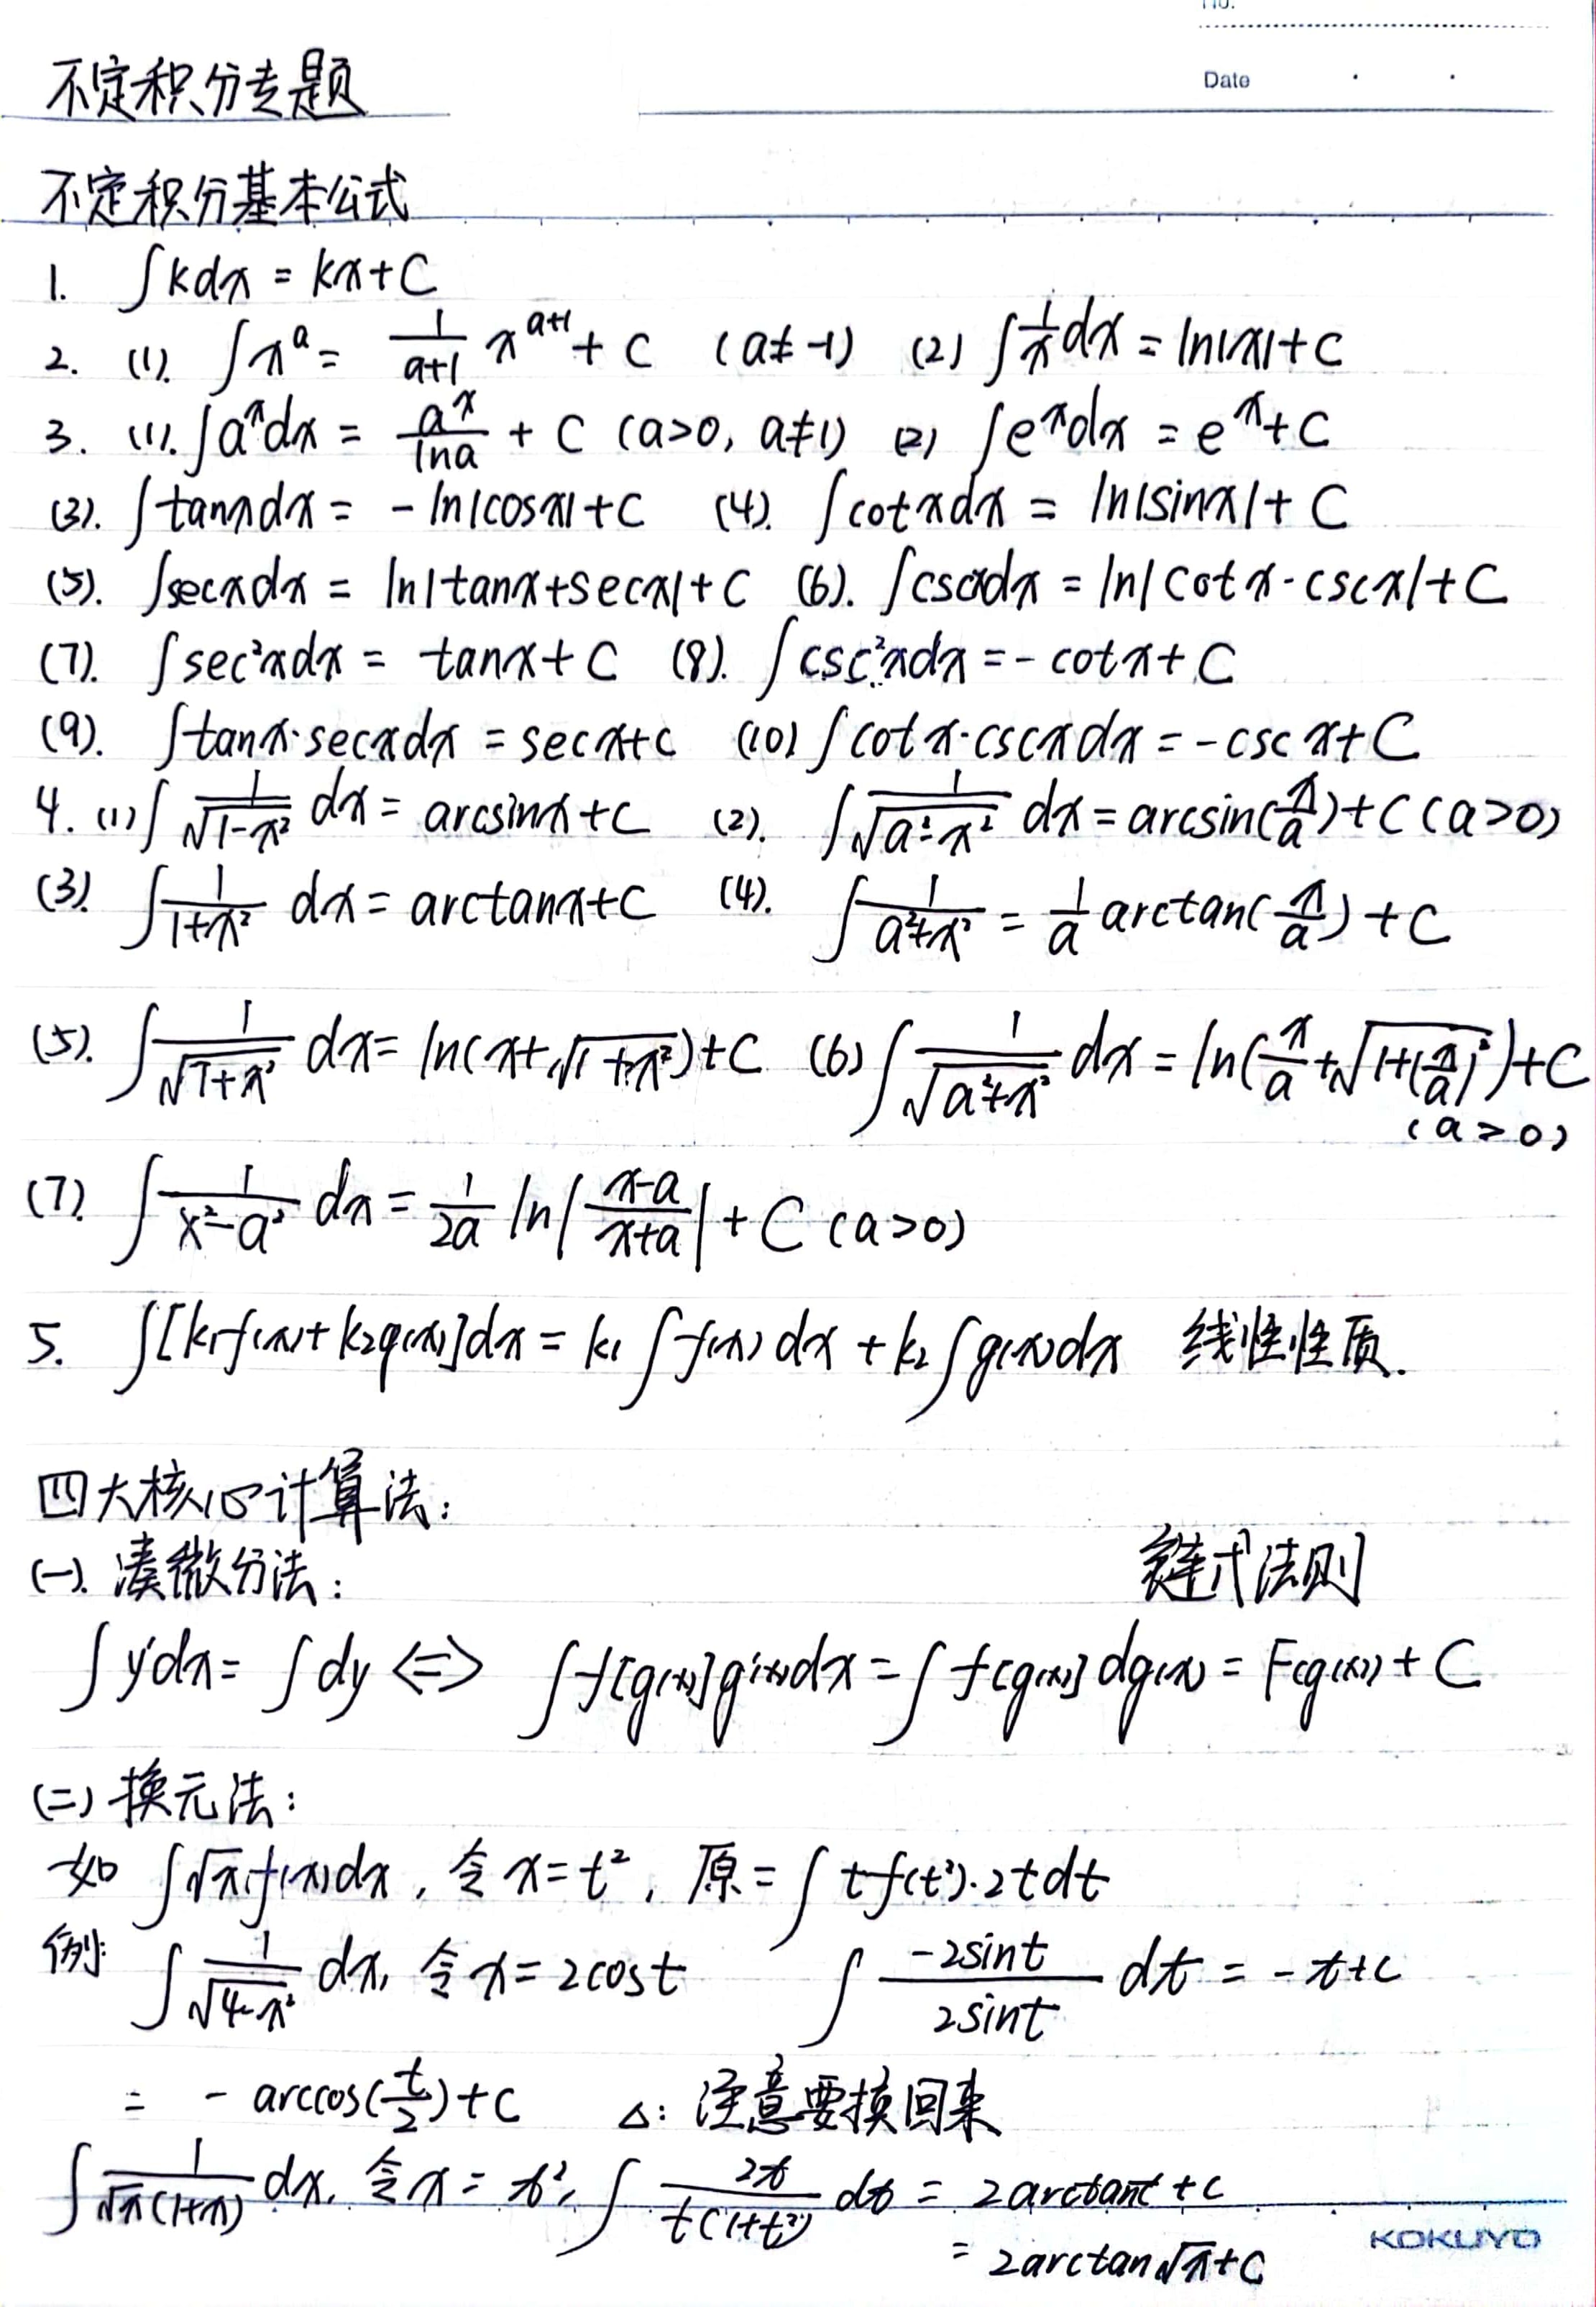 No.
Date
不定积分专题
不定积分基本公式
1. ∫kdx = kx+C
2. (1). ∫x^a = \frac{1}{a+1} x^{a+1} + C (a≠-1) (2) ∫\frac{1}{x}dx = ln|x|+C
3. (1). ∫a^x dx = \frac{a^x}{lna} + C (a>0, a≠1) (2) ∫e^x dx = e^x+C
(3). ∫tanxdx = -ln|cosx|+C (4). ∫cotxdx = ln|sinx|+C
(5). ∫secxdx = ln|tanx+secx|+C (6). ∫cscxdx = ln|cotx-cscx|+C
(7). ∫sec²xdx = tanx+C (8). ∫csc²xdx = -cotx+C
(9). ∫tanx·secxdx = secx+c (10) ∫cotx·cscxdx = -cscx+C
4. (1) ∫\frac{1}{\sqrt{1-x²}} dx = arcsinx+C (2). ∫\frac{1}{\sqrt{a²-x²}} dx = arcsin(\frac{x}{a})+C (a>0)
(3). ∫\frac{1}{1+x²} dx = arctanx+C (4). ∫\frac{1}{a²+x²} = \frac{1}{a} arctan(\frac{x}{a}) + C
(5). ∫\frac{1}{\sqrt{1+x²}} dx = ln(x+\sqrt{1+x²})+C (6) ∫\frac{1}{\sqrt{a²+x²}} dx = ln(\frac{x}{a}+\sqrt{1+(\frac{x}{a})²})+C
(a>0)
(7). ∫\frac{1}{x²-a²} dx = \frac{1}{2a} ln|\frac{x-a}{x+a}| + C (a>0)
5. ∫[k₁f(x)+k₂g(x)]dx = k₁∫f(x)dx + k₂∫g(x)dx 线性性质.
四大核心计算法:
(一). 凑微分法: 链式法则
∫y'dx = ∫dy <=> ∫f[g(x)]g'(x)dx = ∫f[g(x)]dg(x) = F(g(x)) + C
(二) 换元法:
如 ∫\sqrt{x}f(x)dx, 令 x=t², 原=∫tf(t²)·2tdt
例: ∫\frac{1}{\sqrt{4-x²}} dx, 令x=2cost ∫\frac{-2sint}{2sint} dt = -t+c
= -arccos(\frac{t}{2})+C △: 注意要换回来
∫\frac{1}{\sqrt{x}(1+x)} dx, 令x=t², ∫\frac{2t}{t(1+t²)} dt = 2arctant+c
= 2arctan\sqrt{x}+C
KOKUYO